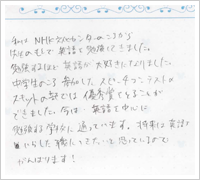 NHKカルチャーセンターのころから
英語を勉強してきました。
勉強するほど英語が大好きになりました。
中学生のころ参加した、スピーチコンテストの
スキットの部では優秀賞をとることが
できました。今は、英語を中心に
勉強する学校に通っています。将来は英語を
いかした職につきたいと思っているので
がんばります!